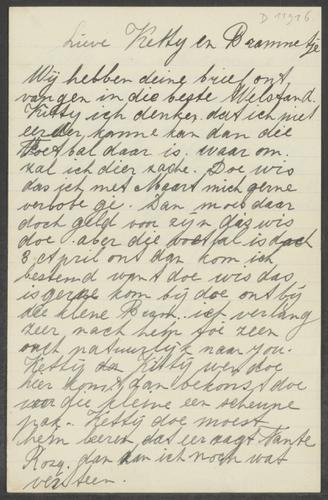 D 11916
Lieve Ketty en Brammetje
Wij hebben deine brief ont
vangen in die beste Welstand.
Kitty ich denken dat ich niet
eerder komme kan dan die
Voetbal daar is, waar om
zal ich dier sache. Doe wis
das ich met Maart mich gerne
verlove ge. Dan mois daar
doch geld voor zijn das wis
doe. aber die voetbal is doch
3 April ont dan kom ich
bestemd want doe wis das
is gerne kom bij doe ont bij
die kleine Bram. ich verlang
zeer nach hem toe zeen
ouch natuurlijk naar you.
Ketty en Kitty wen doe
heer komt dan bekomst doe
voor die kleine een scheune
pak. Ketty doe moest
hem leeren dat eer zagt Tante
Rosa, dan kan ich noch wat
versteen.